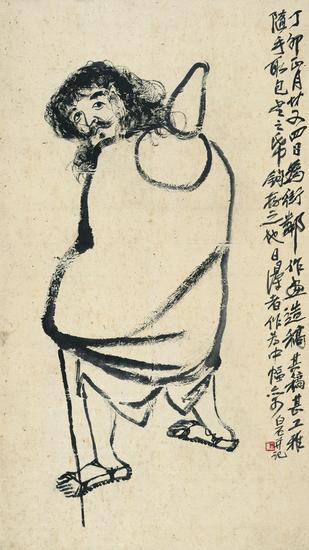 丁卯正月廿又四日為街鄰作畫造稿其稿甚工雅
隨手取包書之紙鉤存之他日得者作為中幅亦可白石并記